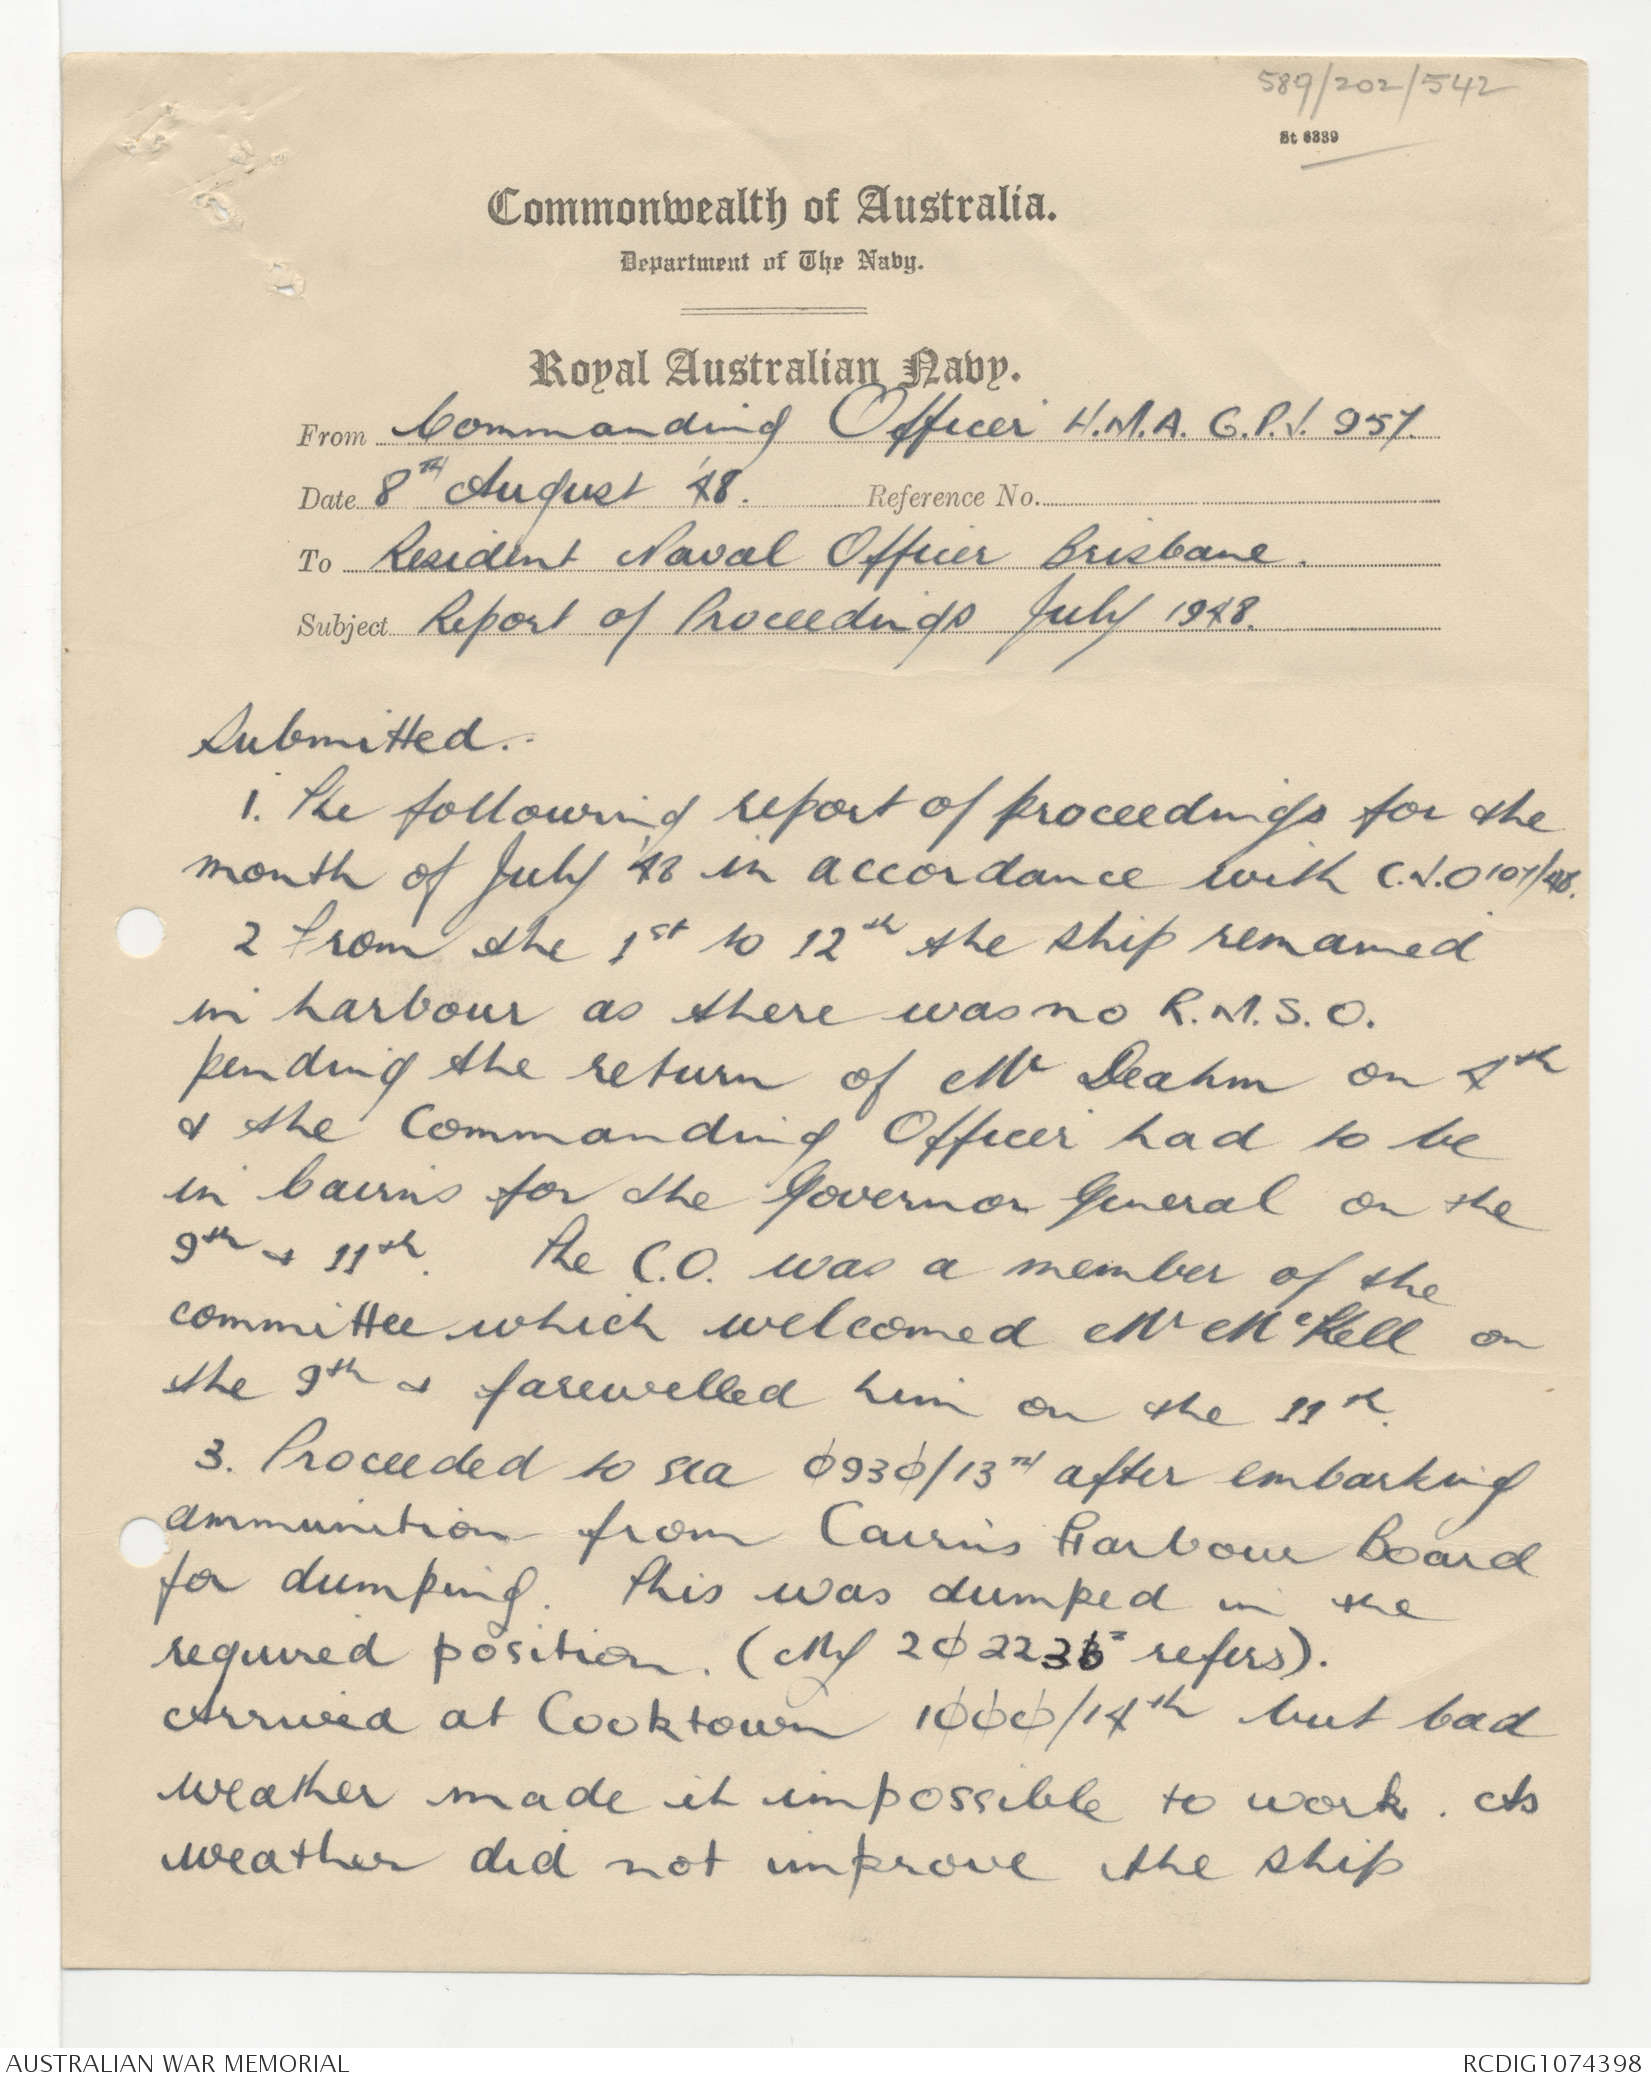 589/202/542
St 6339
Commonwealth of Australia.
Department of The Navy.
Royal Australian Navy.
From Commanding Officer H.M.A. G.P.V. 957.
Date 8TH August '48. Reference No.
To Resident Naval Officer Brisbane.
Subject Report of Proceedings July 1948.
Submitted.
1. The following report of proceedings for the
month of July '48 in accordance with C.N.O 107/48.
2 From the 1st to 12th the ship remained
in harbour as there was no R.M.S.O.
pending the return of Mr Deahm on 4th
& the Commanding Officer had to be
in Cairns for the Governor General on the
9th & 11th. The C.O. was a member of the
committee which welcomed Mr McKell on
the 9th & farewelled him on the 11th.
3. Proceeded to sea 0930/13th after embarking
ammunition from Cairns Harbour Board
for dumping. This was dumped in the
required position. (My refers).
Arrived at Cooktown 1000/14th but bad
weather made it impossible to work. As
weather did not improve the ship
AUSTRALIAN WAR MEMORIAL
RCDIG1074398